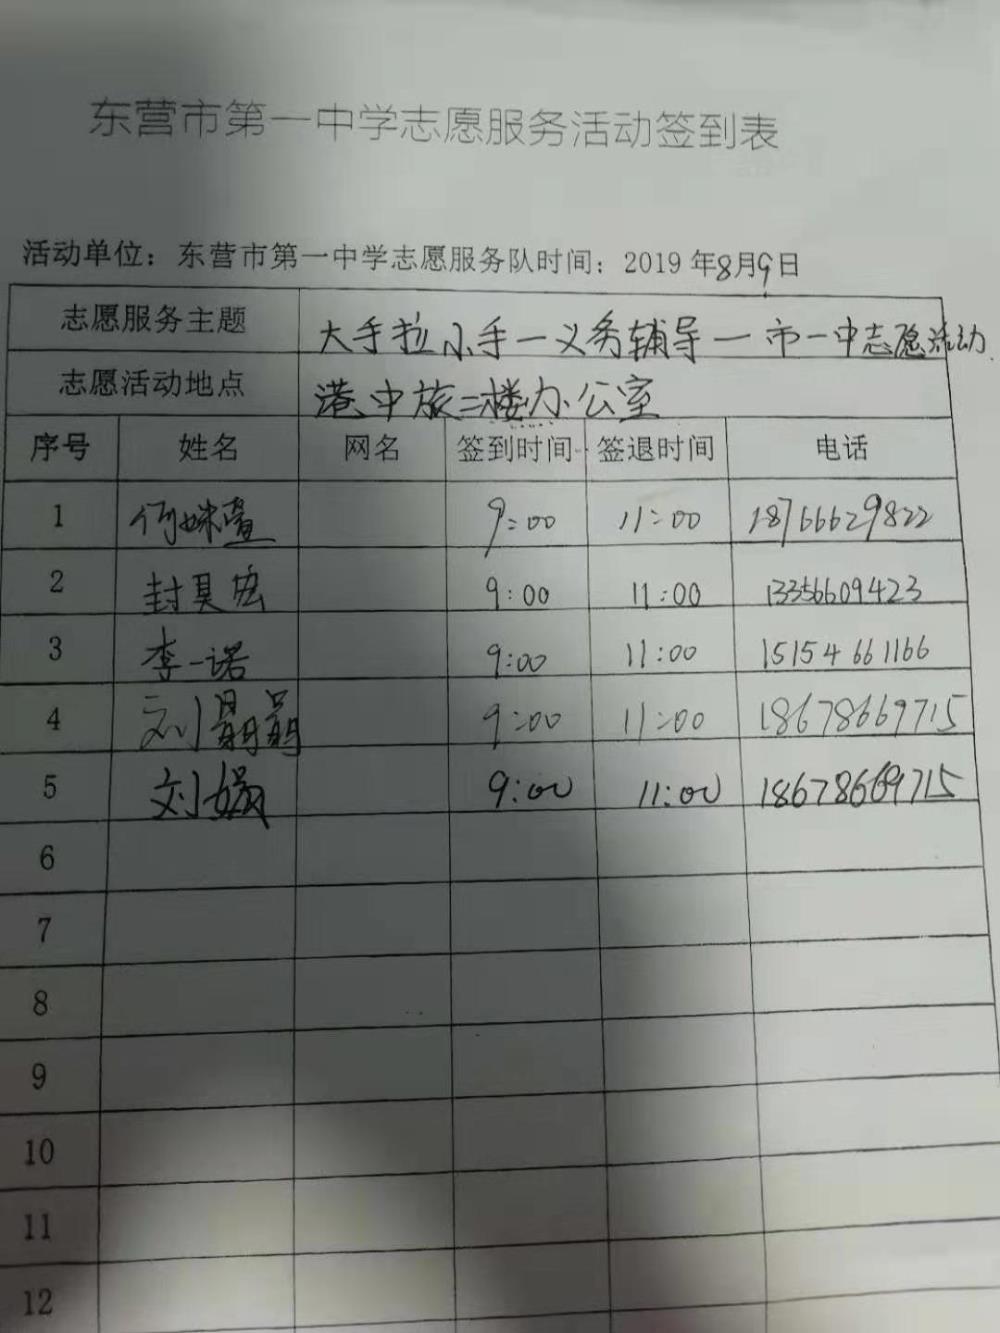 东营市第一中学志愿服务活动签到表
活动单位：东营市第一中学志愿服务队时间：2019年8月9日
志愿服务主题 大手拉小手一义务辅导一市一中志愿活动
志愿活动地点 港中旅二楼办公室
序号 姓名 网名 签到时间 签退时间 电话
1 9:00 11:00 18766629822
2 封昊宏 9:00 11:00 13356609423
3 李一诺 9:00 11:00 15154661166
4 刘 9:00 11:00 18678669715
5 刘 9:00 11:00 18678669715
6
7
8
9
10
11
12